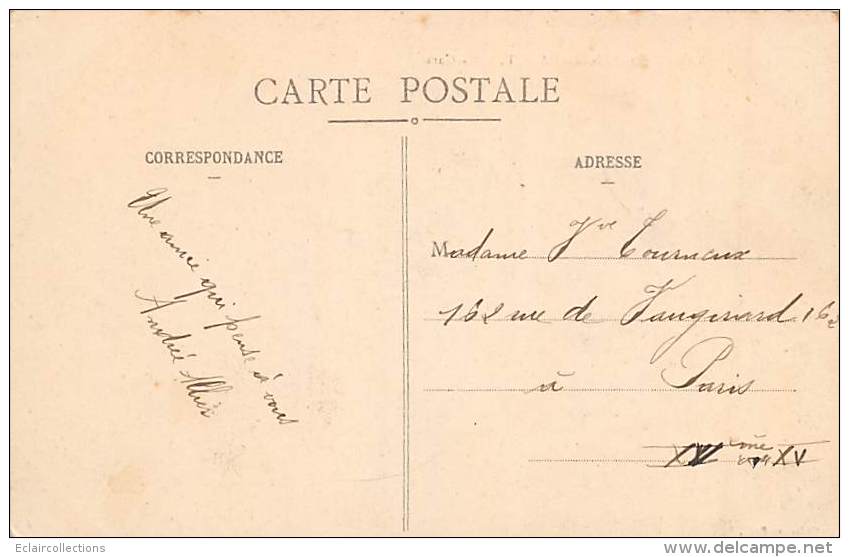 CARTE POSTALE
CORRESPONDANCE
ADRESSE
Une amie qui pense à vous
Andrée Allier
Madame Vve Tourneux
162 rue de Vaugirard 162
à Paris
XV
Eclaircollections
delcampe.net